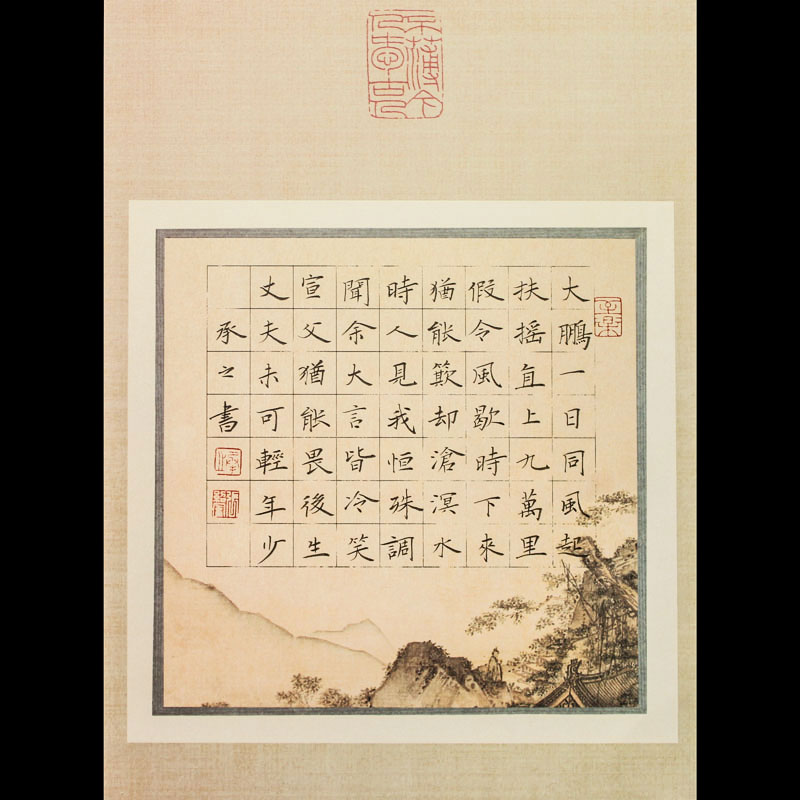 不薄今人愛古人
大鵬一日同風起
扶搖直上九萬里
假令風歇時下來
猶能簸却滄溟水
時人見我恒殊調
聞余大言皆冷笑
宣父猶能畏後生
丈夫未可輕年少
承之書